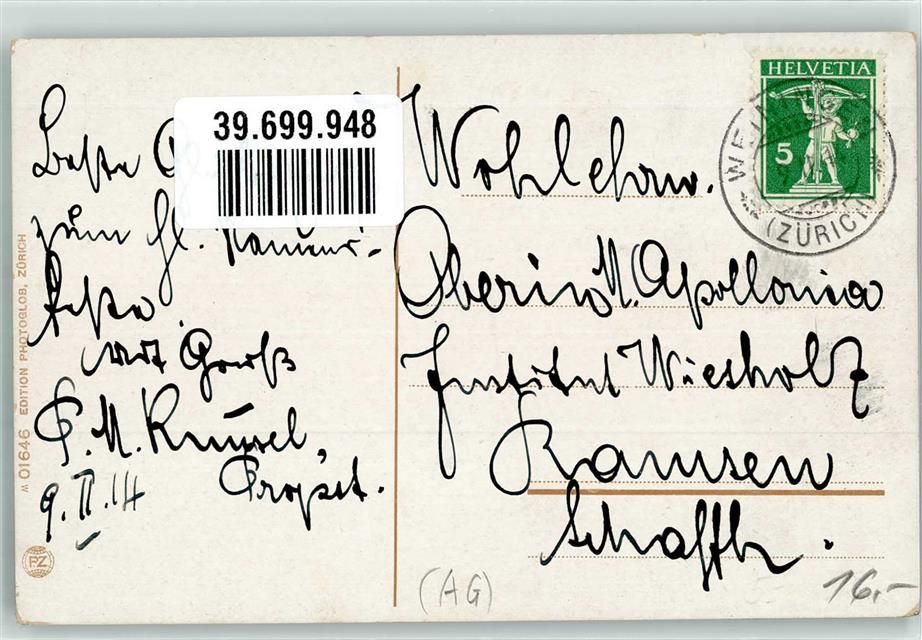 39.699.948
Beste
zum hl. Namens-
feste.
mit Gruß
P. M. Kunzel,
Propst.
9. II. 14
M 01646 EDITION PHOTOGLOB, ZÜRICH
PZ
HELVETIA
5
(ZÜRICH)
Wohlehrw.
Oberin M. Apollonia
Institut Wiesholz
Ramsen
Schaffh.
(AG)
16.-